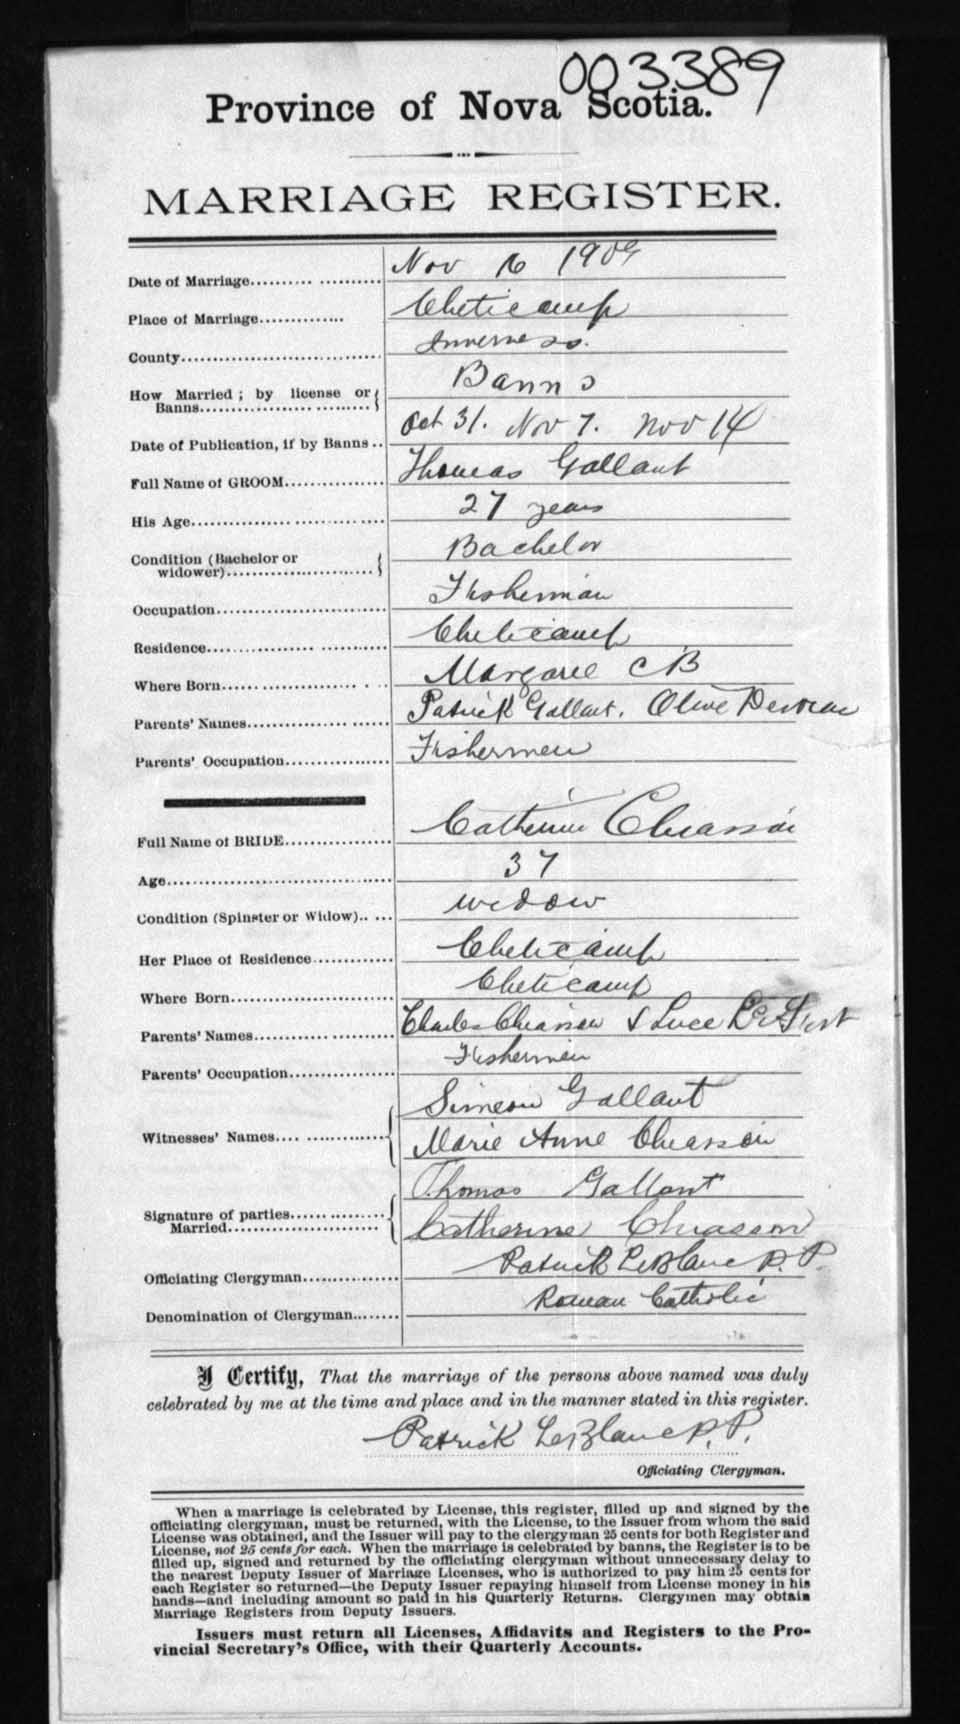 003389
Province of Nova Scotia.
MARRIAGE REGISTER.
Date of Marriage.......... .......... Nov 16 1909
Place of Marriage.............. Cheticamp
County................................. Inverness.
How Married ; by license or
Banns........................... Banns
Date of Publication, if by Banns .. Oct 31. Nov 7. Nov 14
Full Name of GROOM................ Thomas Gallant
His Age................................ 27 years
Condition (Bachelor or
widower)........................ Bachelor
Occupation........................... Fisherman
Residence............................ Cheticamp
Where Born............................ Margaree C B
Parents' Names....................... Patrick Gallant. Olive
Parents' Occupation.................. Fishermen
Full Name of BRIDE................ Catherine Chiasson
Age.................................... 37
Condition (Spinster or Widow).. ... widow
Her Place of Residence............. Cheticamp
Where Born............................ Cheticamp
Parents' Names....................... Charles Chiasson & Luce
Parents' Occupation.................. Fishermen
Simeon Gallant
Witnesses' Names.... ............ Marie Anne Chiasson
Thomas Gallant
Signature of parties..................
Married........................... Catherine Chiasson
Officiating Clergyman............... Patrick LeBlanc P. P.
Denomination of Clergyman........ Roman Catholic
I Certify, That the marriage of the persons above named was duly
celebrated by me at the time and place and in the manner stated in this register.
Patrick LeBlanc P. P.
Officiating Clergyman.
When a marriage is celebrated by License, this register, filled up and signed by the
officiating clergyman, must be returned, with the License, to the Issuer from whom the said
License was obtained, and the Issuer will pay to the clergyman 25 cents for both Register and
License, not 25 cents for each. When the marriage is celebrated by banns, the Register is to be
filled up, signed and returned by the officiating clergyman without unnecessary delay to
the nearest Deputy Issuer of Marriage Licenses, who is authorized to pay him 25 cents for
each Register so returned—the Deputy Issuer repaying himself from License money in his
hands—and including amount so paid in his Quarterly Returns. Clergymen may obtain
Marriage Registers from Deputy Issuers.
Issuers must return all Licenses, Affidavits and Registers to the Pro-
vincial Secretary's Office, with their Quarterly Accounts.